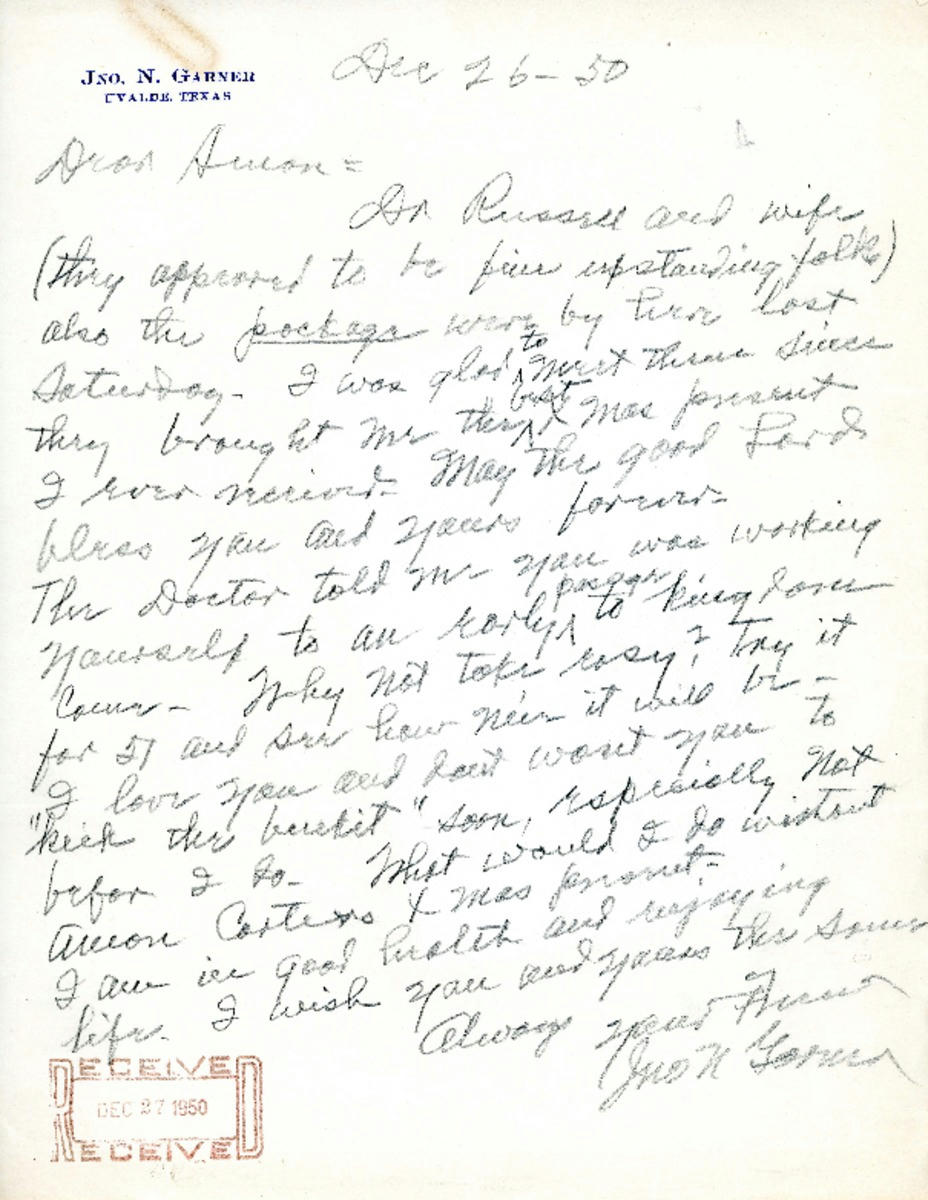 JNO. N. GARNER
UVALDE, TEXAS
Dec 26-50
Dear Amon=
Dr Russell and wife
(they appeared to be fine upstanding folks)
also the package were by here last
Saturday- I was glad to meet them since
they brought me the best X mas present
I ever received- May the good Lord
bless you and yours forever-
The Doctor told me you was working
yourself to an early passage to kingdom
Come- Why not take easy? Try it
for 51 and see how nice it will be-
I love you and dont want you to
"kick the buckit" soon, especially not
befor I do- What would I do without
Amon Carters X mas present-
I am in good health and enjoying
life- I wish you and yours the same
Always your friend
Jno N Garner
RECEIVED
DEC 27 1950
RECEIVED